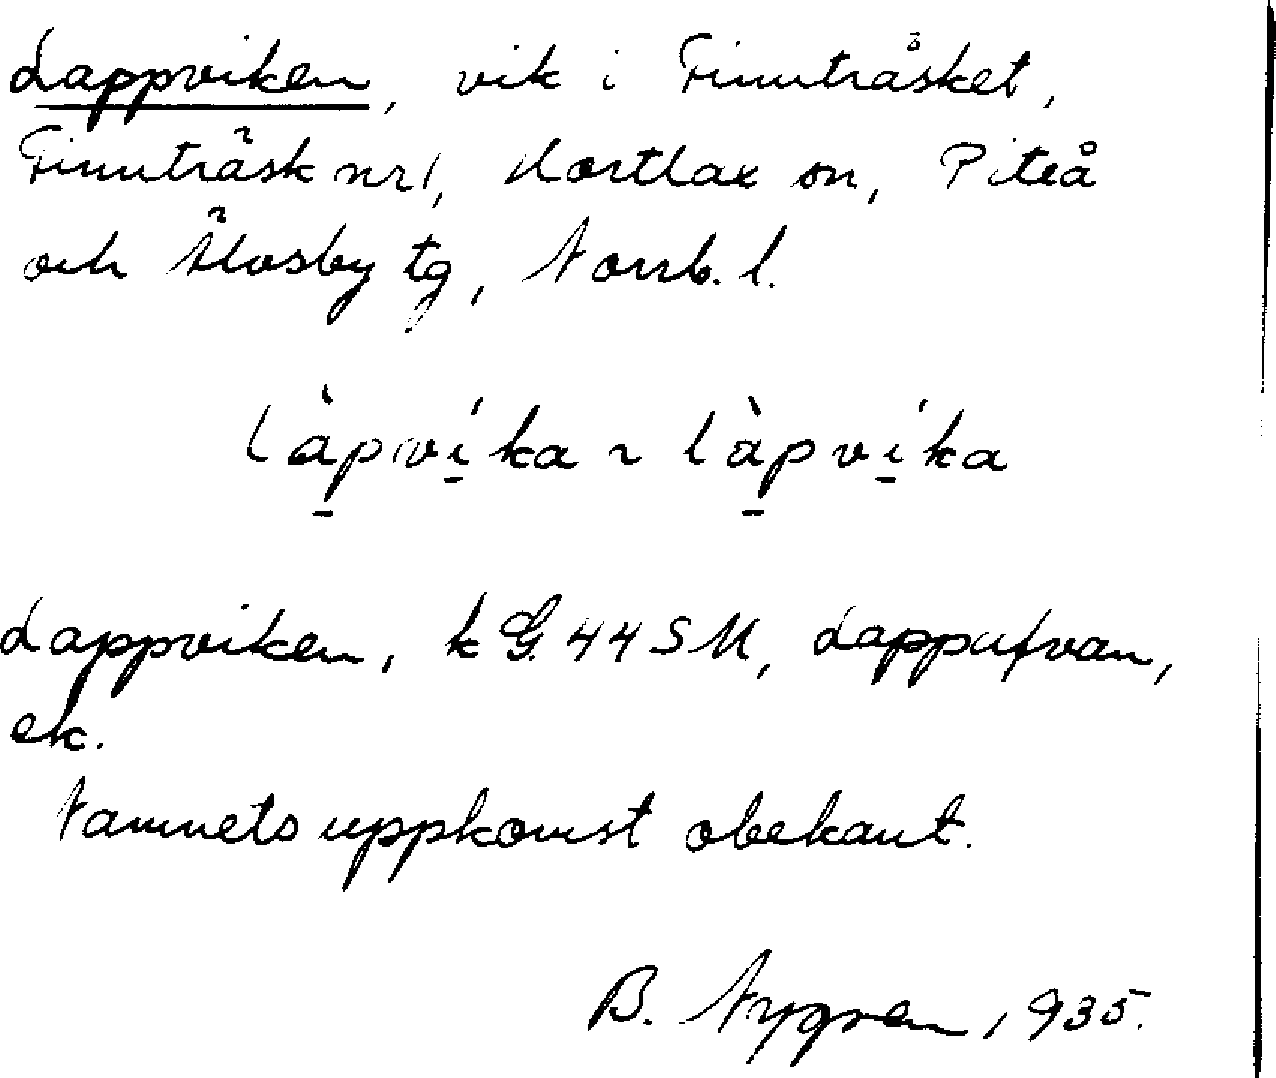 Lappviken, vik i Finnträsket,
Finnträsk nr 1, Hortlax sn, Piteå
och Älvsby tg, Norrb. l.
làpvíka ~ làpvíka
Lappviken, k G. 44 SM, Lapputvan,
ek.
Namnets uppkomst obekant.
B. Nygren, 1935.